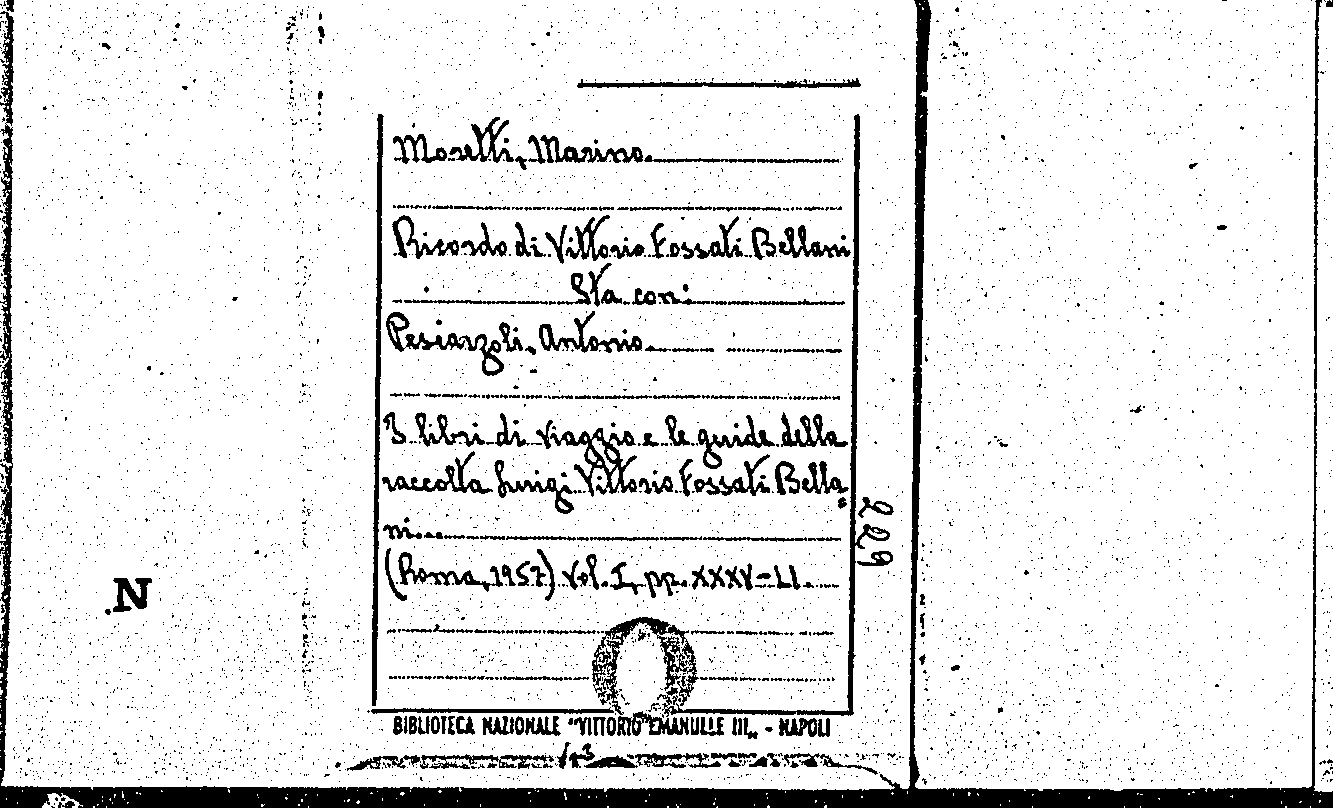 Moretti, Marino.
Ricordo di Vittorio Fossati Bellani
Sta con:
Pescarzoli, Antonio.
I libri di viaggio e le guide della
raccolta Luigi Vittorio Fossati Bella=
ni...
(Roma, 1957) vol. I, pp. XXXV-LI.
229
.N
BIBLIOTECA NAZIONALE "VITTORIO EMANUELE III„ - NAPOLI